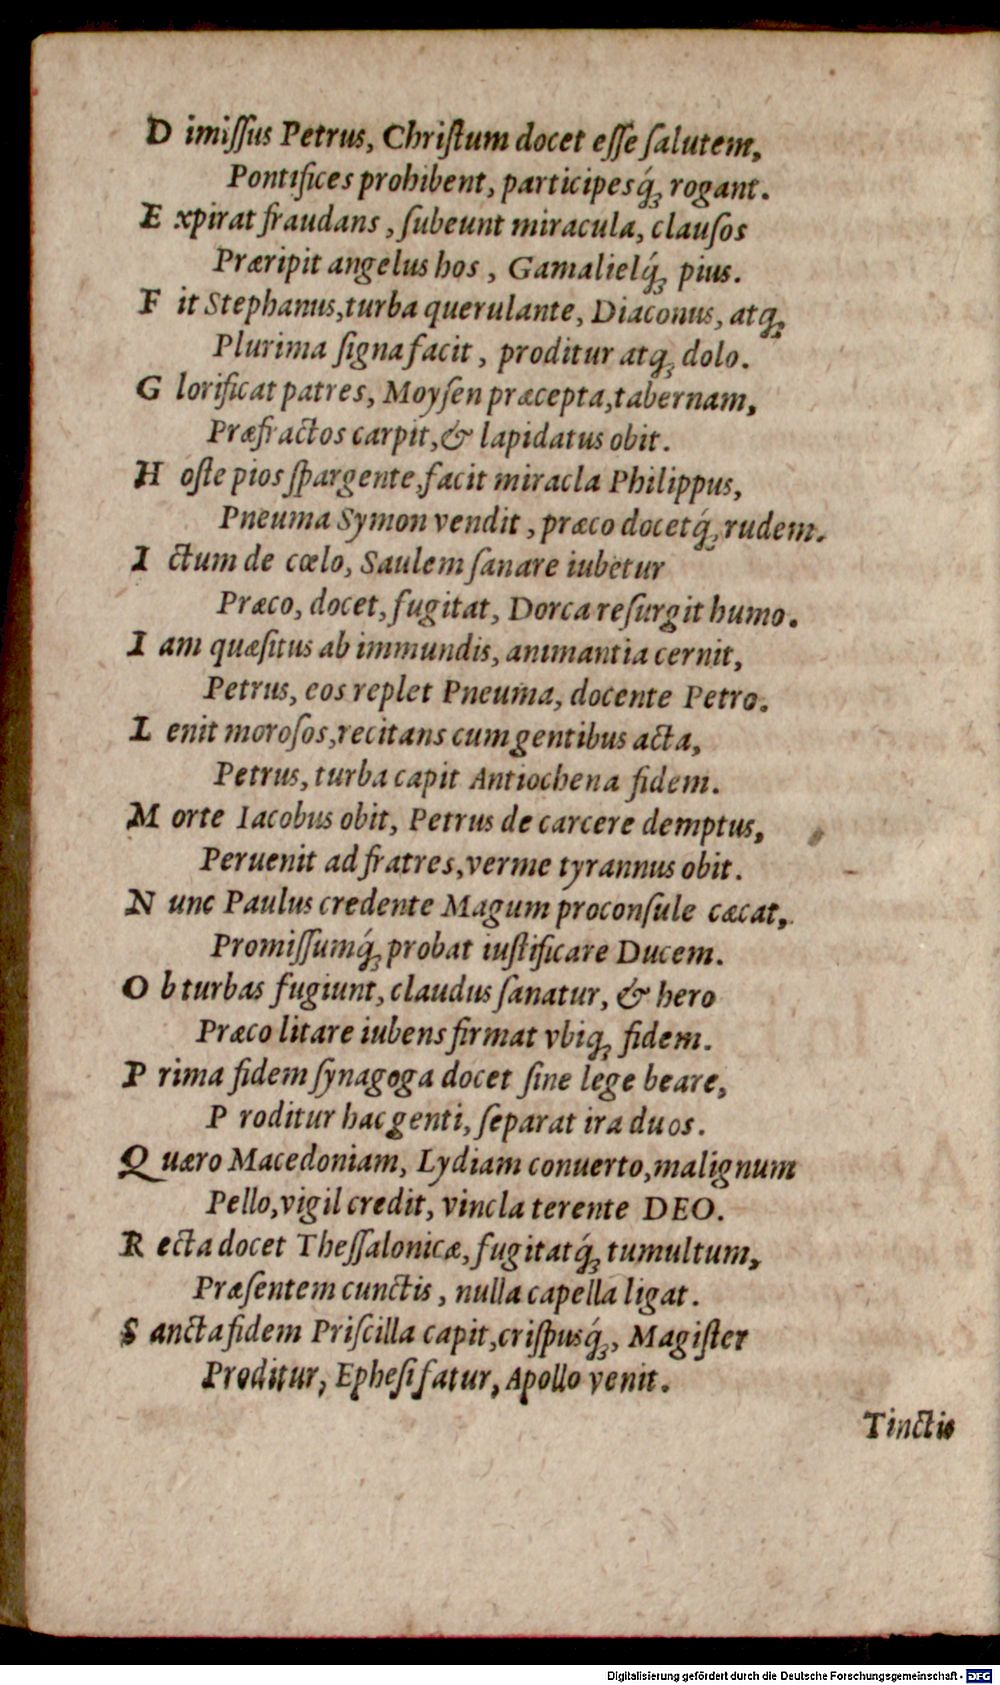 D imiſſus Petrus, Chriſtum docet eſſe ſalutem,
Pontifices prohibent, participesq́ꝫ rogant.
E xpirat fraudans, ſubeunt miracula, clauſos
Præripit angelus hos, Gamalielq́ꝫ pius.
F it Stephanus, turba querulante, Diaconus, atqꝫ
Plurima ſigna facit, proditur atqꝫ dolo.
G lorificat patres, Moyſen præcepta, tabernam,
Præfractos carpit, & lapidatus obit.
H oſte pios ſpargente, facit miracla Philippus,
Pneuma Symon vendit, præco docetq́ꝫ rudem.
I ctum de cœlo, Saulem ſanare iubetur
Præco, docet, fugitat, Dorca reſurgit humo.
I am quæſitus ab immundis, animantia cernit,
Petrus, eos replet Pneuma, docente Petro.
L enit moroſos, recitans cum gentibus acta,
Petrus, turba capit Antiochena fidem.
M orte Iacobus obit, Petrus de carcere demptus,
Peruenit ad fratres, verme tyrannus obit.
N unc Paulus credente Magum proconſule cæcat,
Promiſſumq́ꝫ probat iuſtificare Ducem.
O b turbas fugiunt, claudus ſanatur, & hero
Præco litare iubens firmat vbiqꝫ fidem.
P rima fidem ſynagoga docet ſine lege beare,
P roditur hac genti, ſeparat ira duos.
Q uæro Macedoniam, Lydiam conuerto, malignum
Pello, vigil credit, vincla terente DEO.
R ecta docet Theſſalonicæ, fugitatq́ꝫ tumultum,
Præſentem cunctis, nulla capella ligat.
S ancta fidem Priſcilla capit, criſpusq́ꝫ, Magiſter
Proditur, Epheſi fatur, Apollo venit.
Tinctis
Digitalisierung gefördert durch die Deutsche Forschungsgemeinschaft - DFG